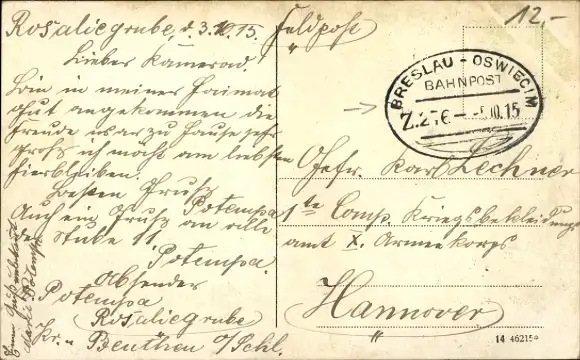 Rosaliegrube, d. 3.10.15.
Lieber Kamerad.
Bin in meiner Heimat
gut angekommen die
Freude war zu Hause sehr
groß ich möcht am liebsten
hierbleiben.
Besten Gruß
Potempa
Auch ein Gruß an alle
der Stube 11
Potempa.
Absender
Potempa
Rosaliegrube
Kr. Beuthen O/Schl.
Einen
Potempa
Feldpost
12,-
BRESLAU - OSWIECIM
BAHNPOST
Z.216 - 5.10.15
Gefr. Karl Lechner
1te Comp. Kriegsbekleidungs
amt X. Armeekorps
Hannover
14 46215